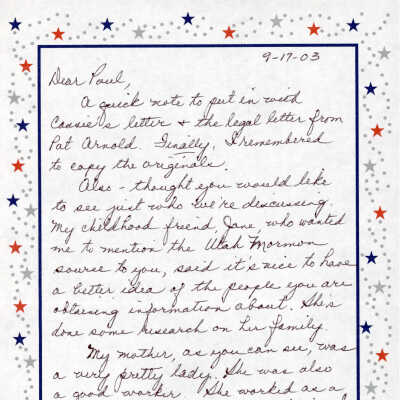 9-17-03
Dear Paul,
A quick note to put in with
Cassie's letter & the legal letter from
Pat Arnold. Finally, I remembered
to copy the originals.
Also - thought you would like
to see just who we're discussing.
My childhood friend, Jane, who wanted
me to mention the Utah Mormon
source to you, said it's nice to have
a better idea of the people you are
obtaining information about. She's
done some research on her family.
My mother, as you can see, was
a very pretty lady. She was also
a good worker. She worked as a